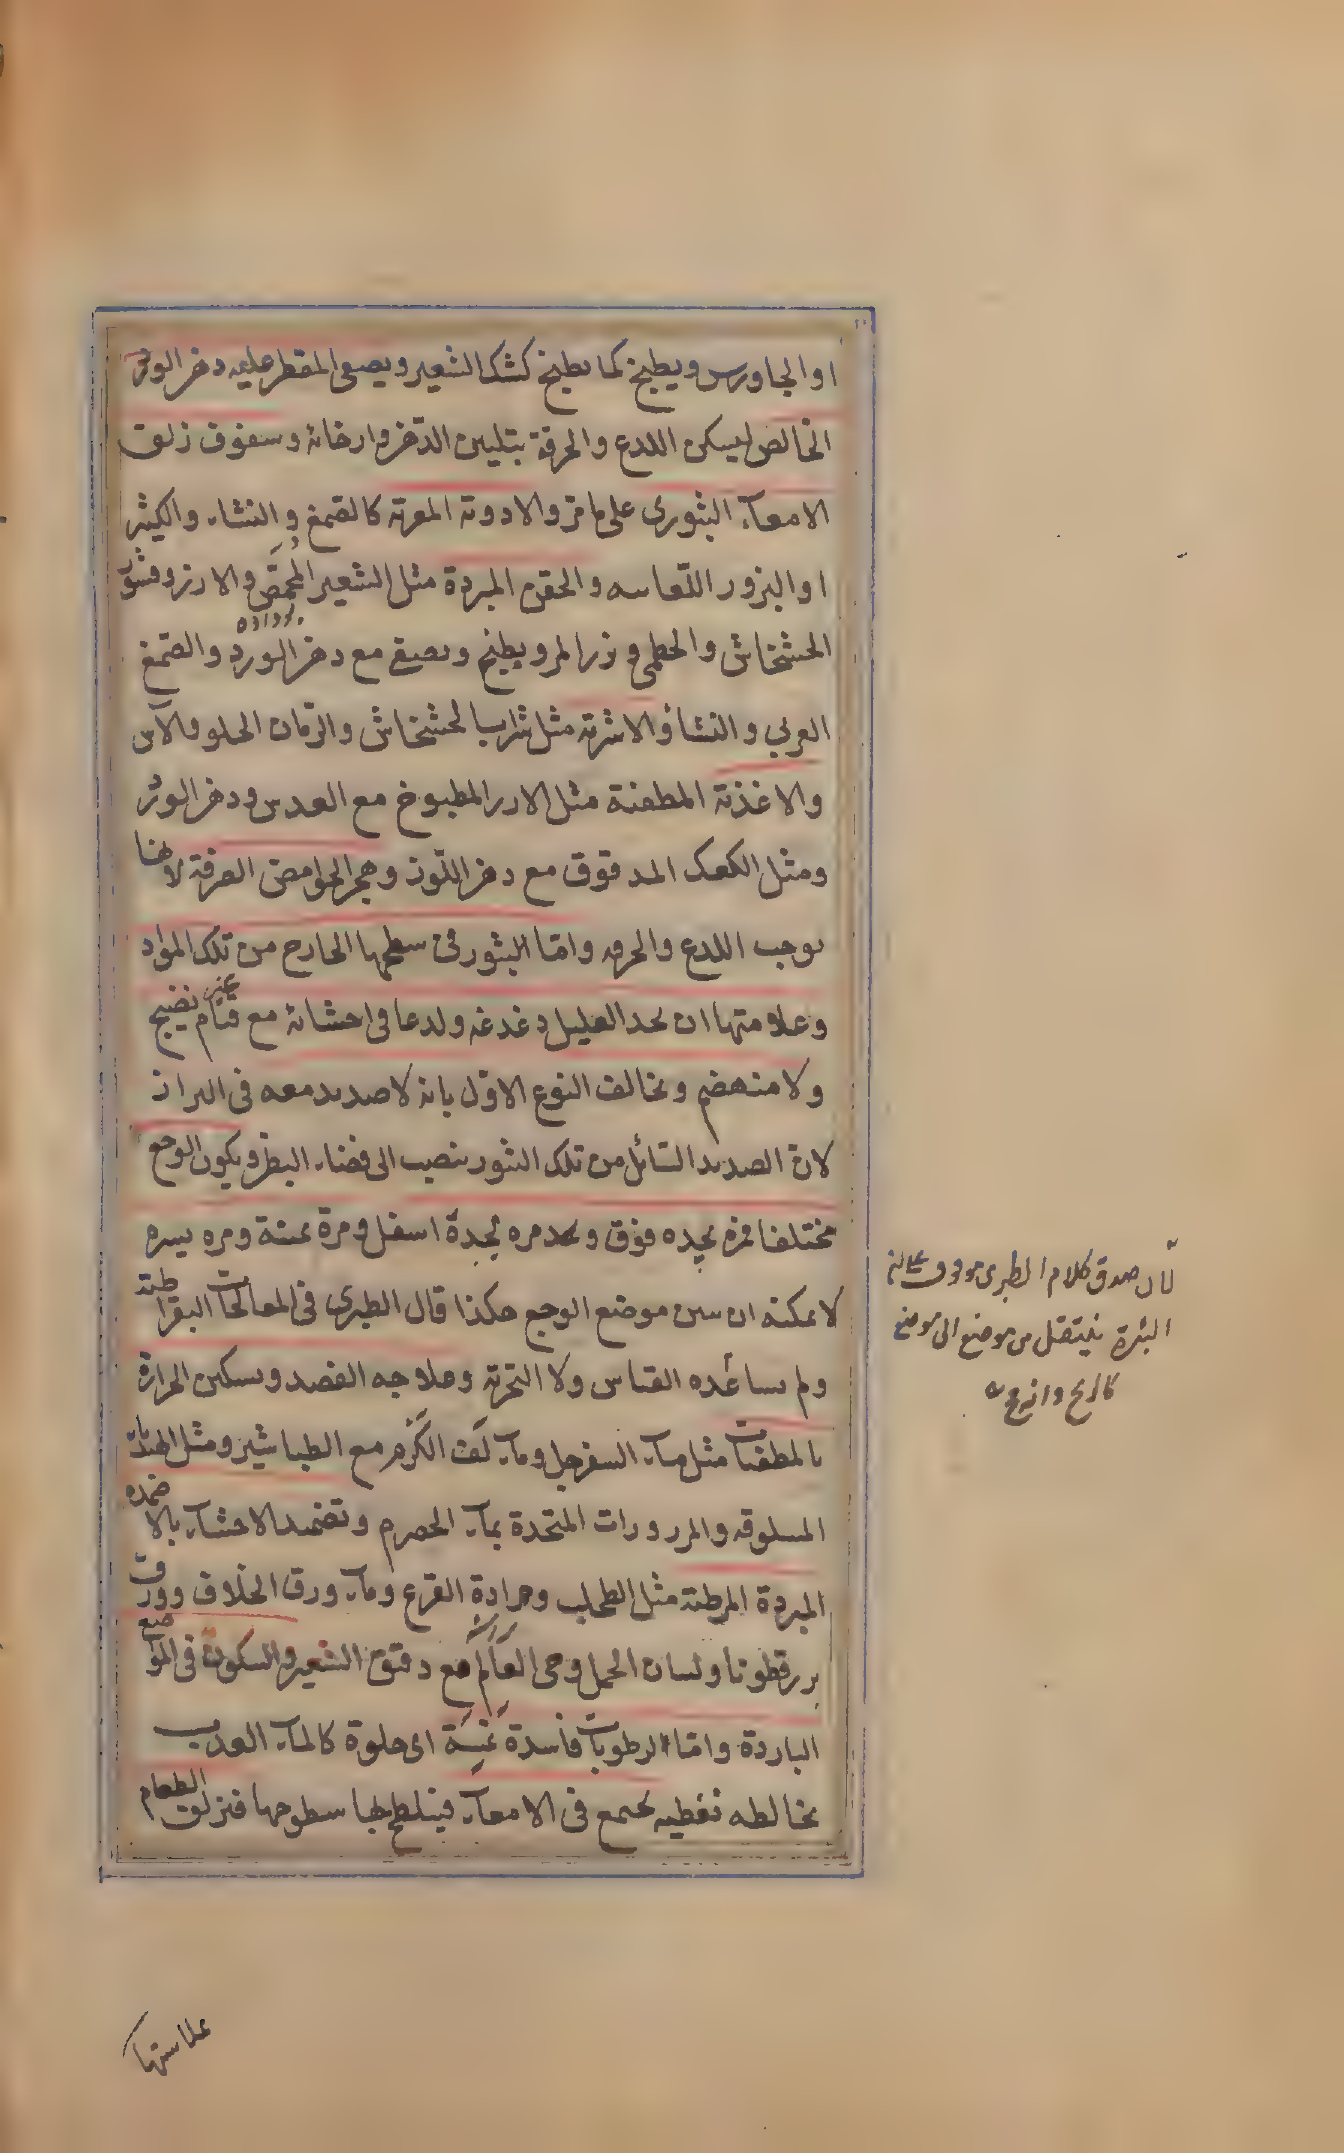 او الجاورس ويطبخ كما يطبخ كشك الشعير ويصفى المقطر عليه دهن الورد
الخالص ليسكن اللدع والحرقة بتليين الدهن وارخائه وسفوف زلق
الامعآء البثورى على ما مر والادوية المغرية كالصمغ والنشاء والكثير
او البزور اللعابيه والحقن المبردة مثل الشعير المحمص والارز وقشور
الخشخاش والخطمى و المر ويطبخ ويصفى مع دهن الورد والصمغ
العربي والنشا والاشربة مثل شراب الخشخاش والرمان الحلو والآس
والاغذية المطفئة مثل الارز المطبوخ مع العدس ودهن الورد
ومثل الكعك المدقوق مع دهن اللوز وهجر الحوامض الصرفة لانها
يوجب اللدع والحرقه واما البثور في سطحها الخارج من تلك المواد
وعلامتها ان يجد العليل دغدغه ولدعا في احشائه مع قيام غير نضيج
ولا منهضم ويخالف النوع الاول بانه لا صديد معه فى البراز
لان الصديد السائل من تلك البثور ينصب الى فضاء البطن ويكون الوجع
مختلفا فمرة يجده فوق ويجد مره يجدة اسفل ومرة يمنة ومره يسره
لا يمكنه ان يبين موضع الوجع هكذا قال الطبري في المعالجات البقراطية
ولم يساعده القياس ولا التجربة وعلاجه الفصد وتسكين الحرارة
بالمطفيات مثل مآء السفرجل ومآء الكرم مع الطباشير ومثل
المسلوقه والمزورات المتخذة بمآء الحصرم وتضميد الاحشآء بالاضمده
المبردة المرطبة مثل الطحلب وجرادة القرع ومآء ورق الخلاف وورق
بزرقطونا ولسان الحمل وحى العالم مع دقيق الشعير والسكون فى المواضع
الباردة واما الرطوبات فاسدة اى حلوة كالمآء العذب
يخالطه تغطيه يجتمع فى الامعآء فيتلطخ بها سطوحها فيزلق الطعام
لان صدق كلام الطبرى موقوف على
البثرة ينتقل من موضع الى موضع
كالريح
علامتها